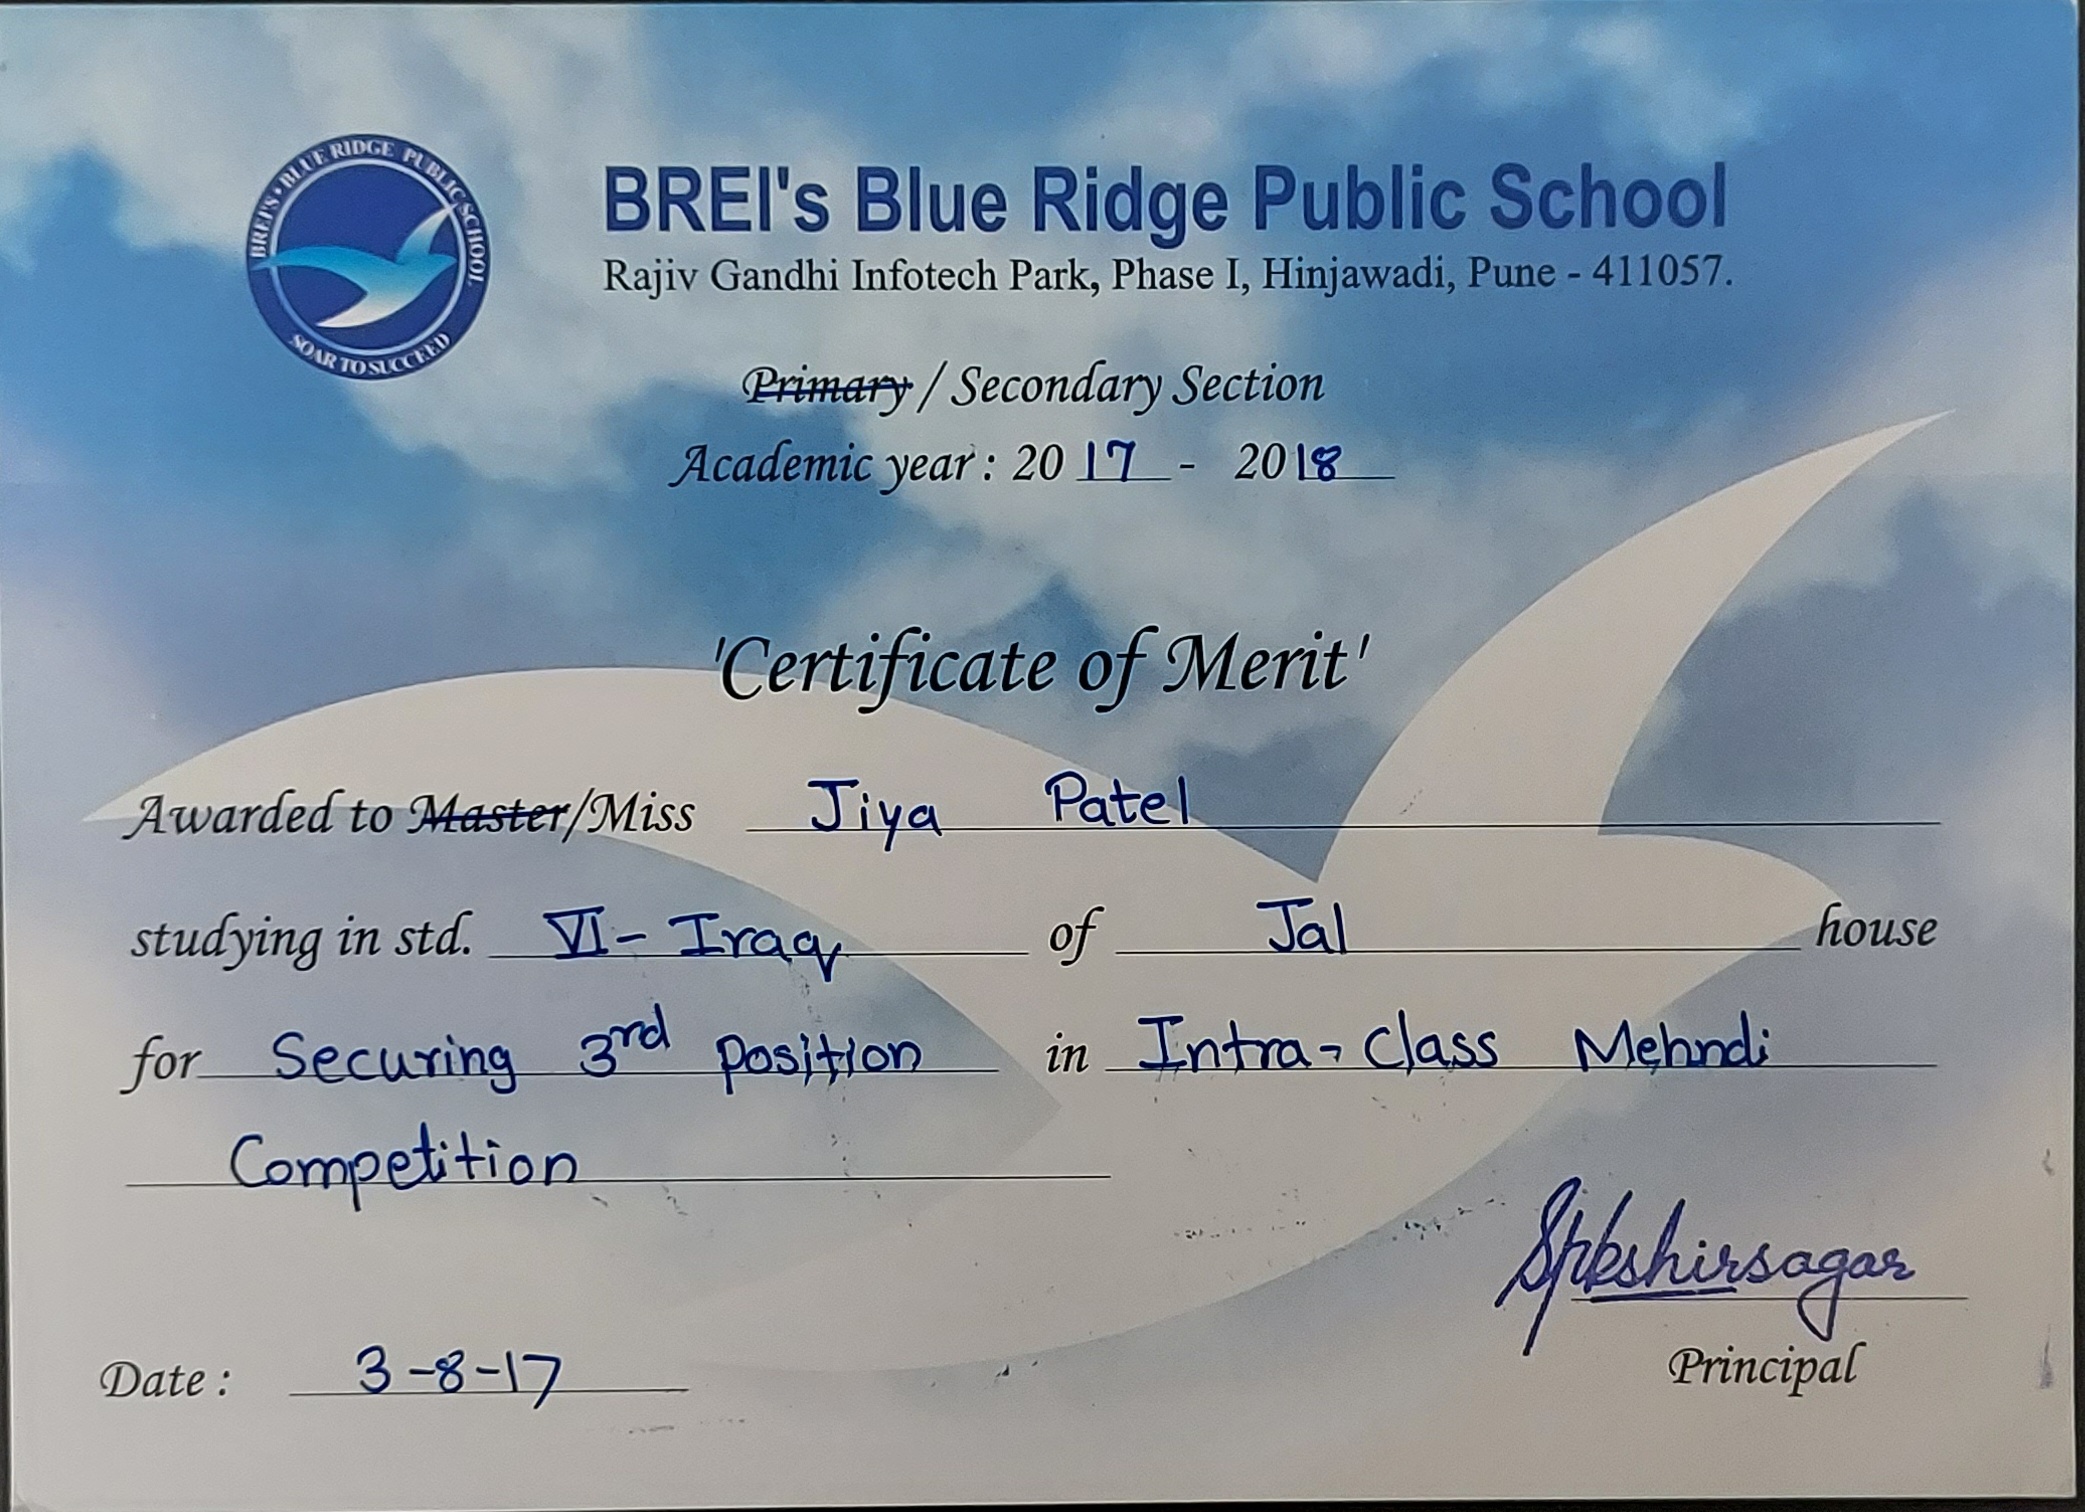 BREI'S • BLUE RIDGE PUBLIC SCHOOL.
SOAR TO SUCCEED
BREI's Blue Ridge Public School
Rajiv Gandhi Infotech Park, Phase I, Hinjawadi, Pune - 411057.
Primary / Secondary Section
Academic year : 20 17 - 2018
'Certificate of Merit'
Awarded to Master/Miss Jiya Patel
studying in std. VI - Iraq of Jal house
for Securing 3rd position in Intra - Class Mehndi
Competition
Spkshirsagar
Date : 3-8-17
Principal